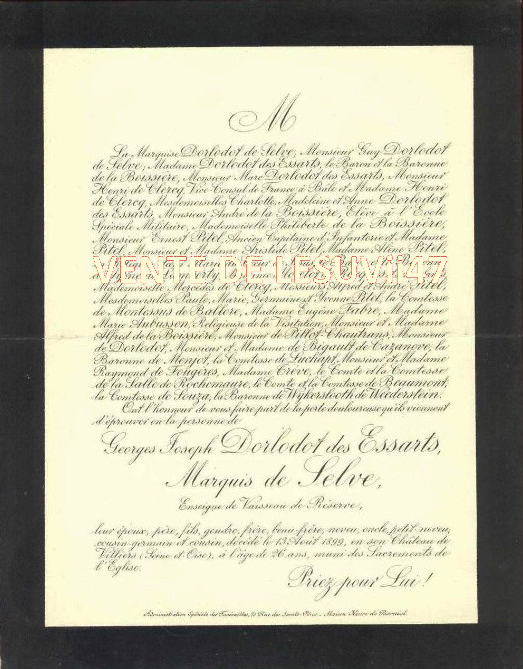 M
La Marquise Dorlodot de Selve, Monsieur Guy Dorlodot
de Selve, Madame Dorlodot des Essarts, le Baron et la Baronne
de la Boissière, Monsieur Marc Dorlodot des Essarts, Monsieur
Henri de Clercq, Vice Consul de France à Bâle et Madame Henri
de Clercq, Mesdemoiselles Charlotte, Madeleine et Anne Dorlodot
des Essarts, Monsieur André de la Boissière, Elève à l'Ecole
Spéciale Militaire, Mademoiselle Philiberte de la Boissière,
Monsieur Ernest Pitel, Ancien Capitaine d'Infanterie et Madame
Pitel, Monsieur et Madame Aristide Pitel, Madame Alène Pitel,
VENTE DE LESUV147
Mademoiselle Mercédès de Clercq, Messieurs Alfred et André Pitel,
Mesdemoiselles Paule, Marie, Germaine et Yvonne Pitel, la Comtesse
de Montessus de Ballore, Madame Eugène Fabre, Madame
Marie Aubusson, Religieuse de la Visitation, Monsieur et Madame
Alfred de la Boissière, Monsieur de Pillot-Chantrans, Monsieur
de Dorlodot, Monsieur et Madame de Bigault de Cazanove, la
Baronne de Menjot, la Comtesse de Luchapt, Monsieur et Madame
Raymond de Fougères, Madame Crève, le Comte et la Comtesse
de la Salle de Rochemaure, le Comte et la Comtesse de Beaumont,
la Comtesse de Souza, la Baronne de Wykerslooth de Weerdestein
Ont l'honneur de vous faire part de la perte douloureuse qu'ils viennent
d'éprouver en la personne de
Georges Joseph Dorlodot des Essarts,
Marquis de Selve,
Enseigne de Vaisseau de Réserve,
leur époux, père, fils, gendre, frère, beau-frère, neveu, oncle, petit neveu,
cousin-germain et cousin, décédé le 13 Août 1899, en son Château de
Villiers (Seine et Oise), à l'âge de 26 ans, muni des Sacrements de
l'Eglise.
Priez pour Lui!
Administration Spéciale des Funérailles, Rue des Saints-Pères - Maison Henri de Borniol